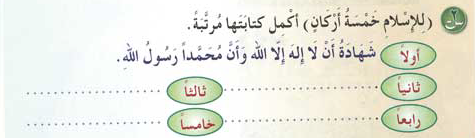 س٢ (لِلإِسْلَامِ خَمْسَةُ أَرْكَانٍ) أَكْمِل كِتَابَتَها مُرتَّبَةً.
أولاً شَهَادَةُ أَنْ لَا إِلهَ إِلَّا الله وَأَنَّ مُحَمَّداً رَسُولُ اللهِ.
ثانياً .......................... ثالثاً ..........................
رابعاً .......................... خامساً ..........................